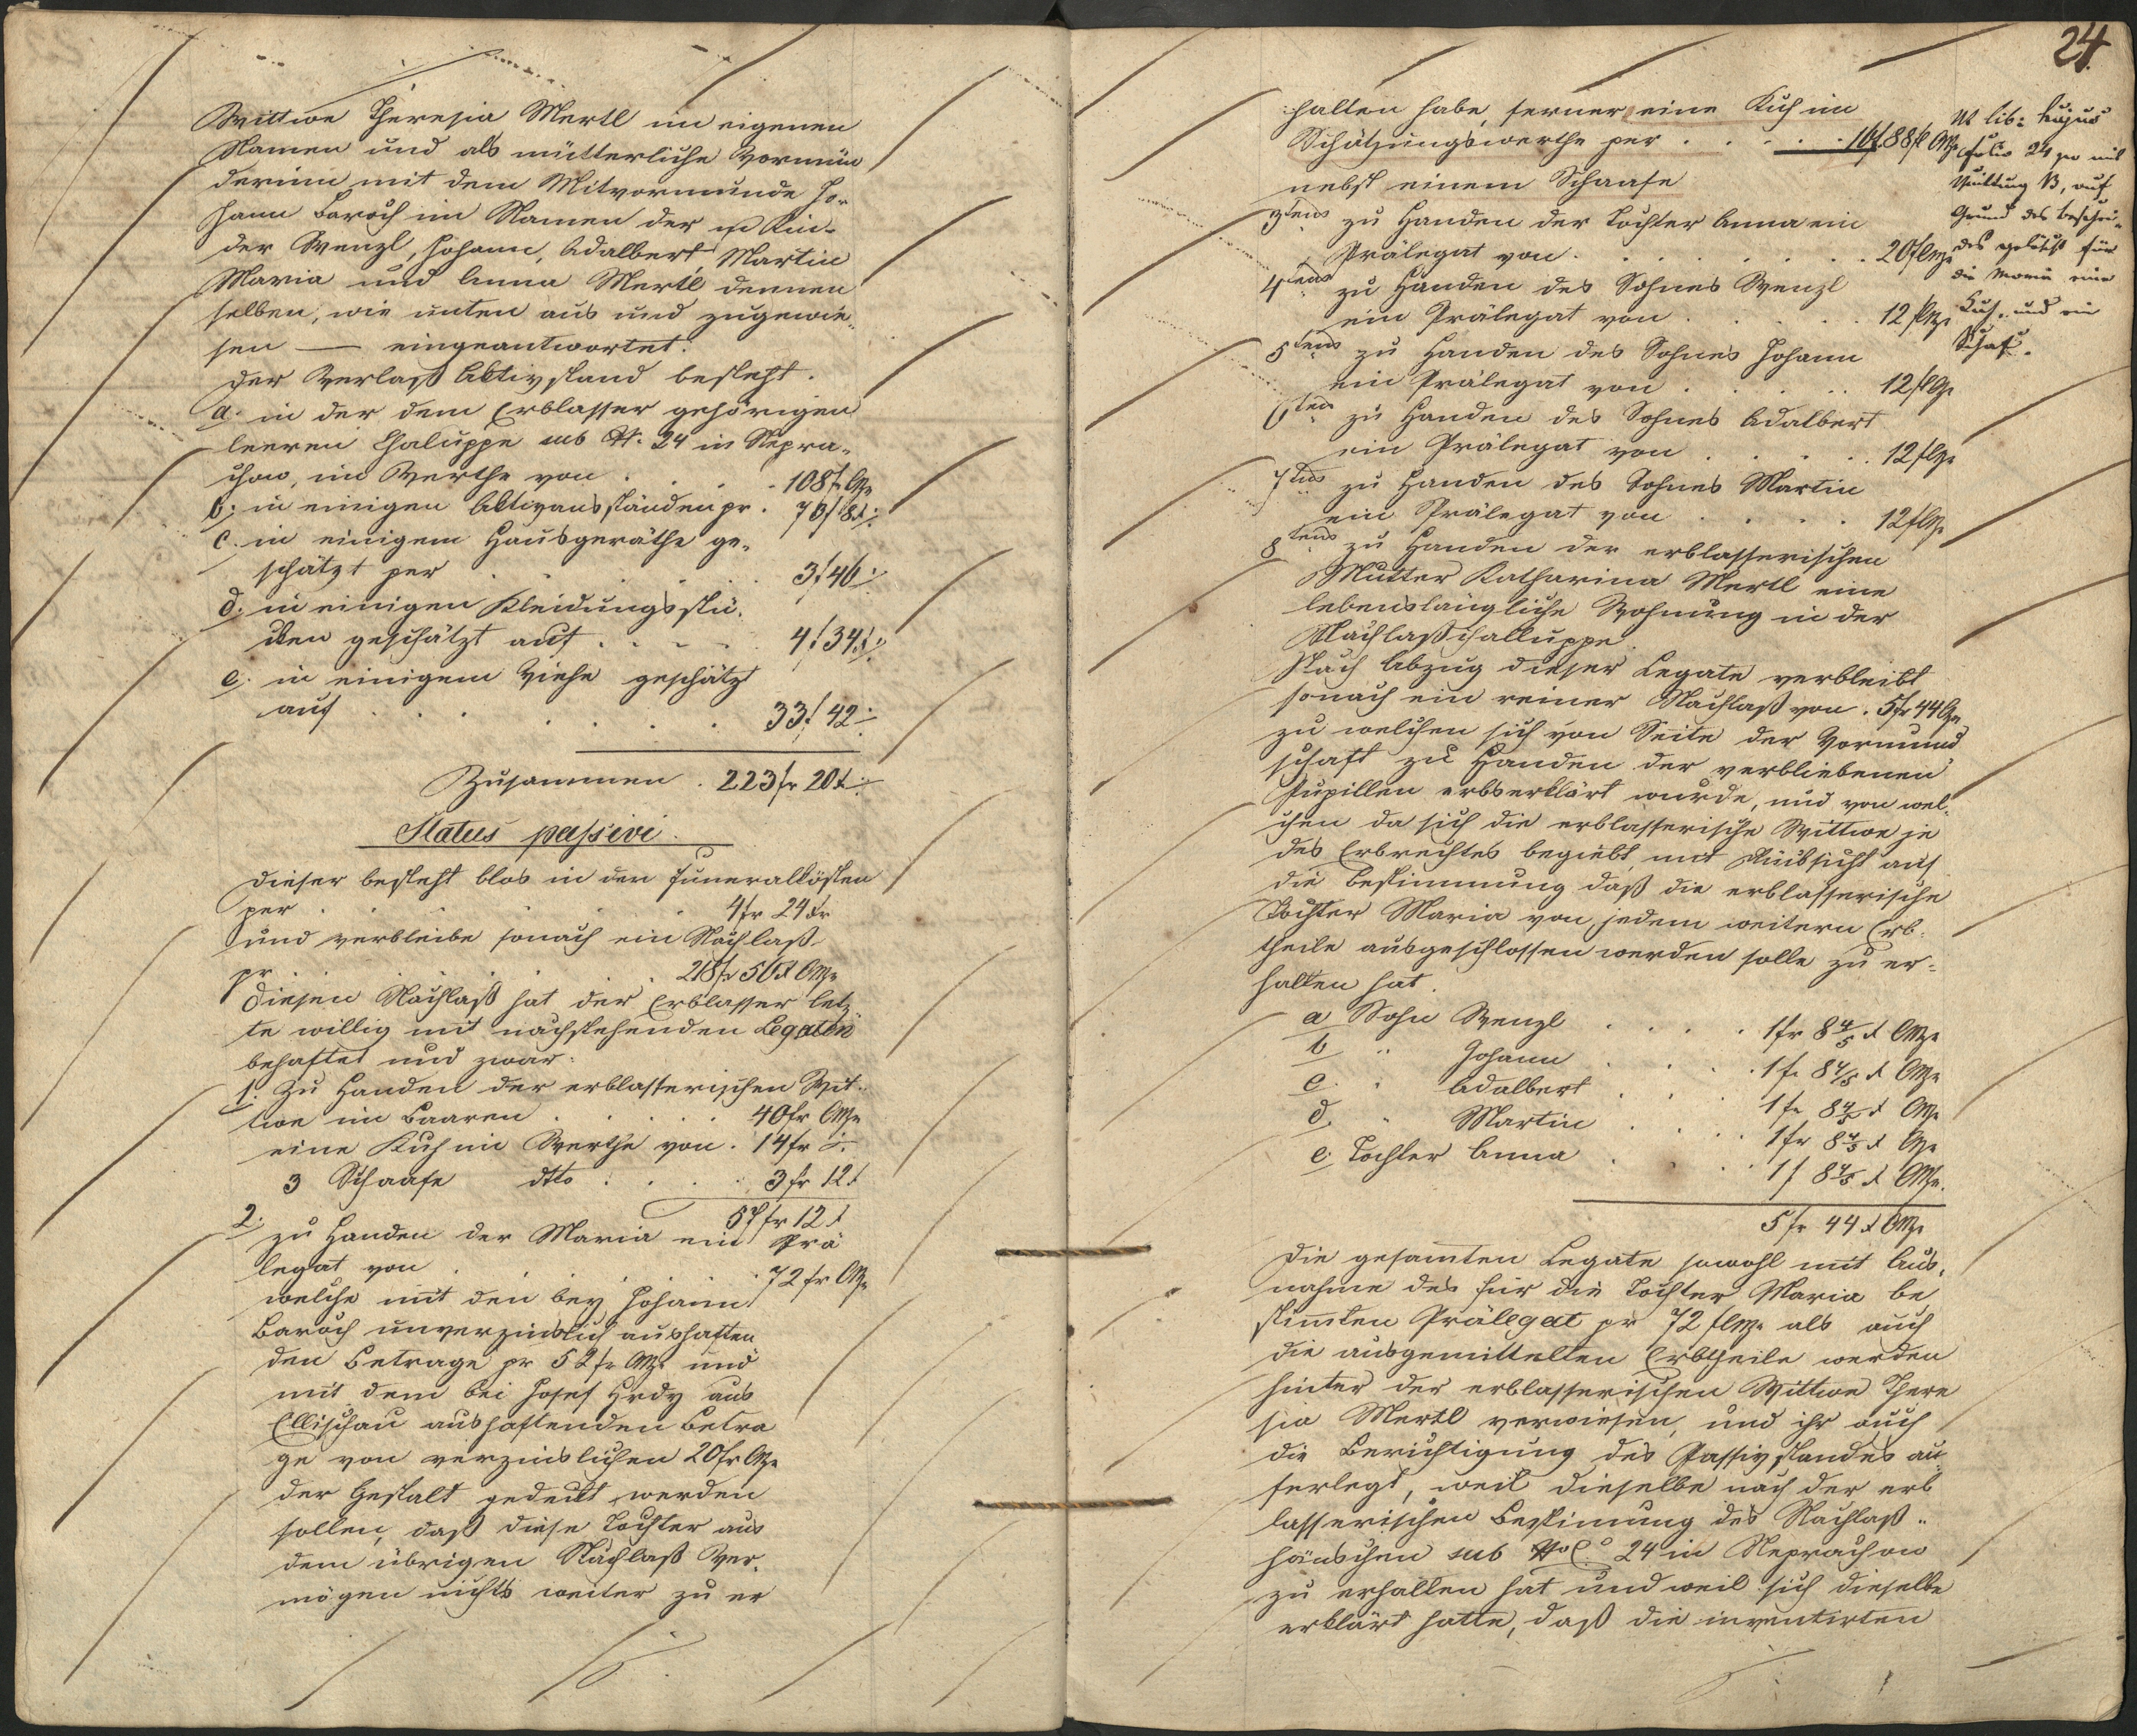 Wittwe Theresia Mertl im eigenen
Namen und als mütterliche Vormün
derinn mit dem Mitvormunde Jo-
hann Baroch im Namen der Kin-
der Wenzl, Johann, Adalbert Martin
Maria und Anna Mertl dennen
selben, wie unten aus und zugewie-
sen — eingeantwortet.
Der Verlaß Aktivstand besteht.
a. in der dem Erblasser gehörigen
leeren Chaluppe sub N: 24 in Nepra-
chow, im Werthe von . 108 f CMze
b. in einigen Aktivausständen pr. 73 f 8 x
c. in einigem Hausgeräthe ge-
schätzt per 3 f 46
d. in einigen Kleidungsstü-
cken geschätzt auf . . . 4 f 34 x
e. in einigem Viehe geschätzt
auf . . . 33 f 42
Zusammen . 223 fr 20 x
Status passivi.
Dieser besteht blos in den Funeralkösten
per . . . 4 fr 24 xr
und verbleibe sonach ein Nachlaß
pr . . . 218 fr 56 x CMze
Diesen Nachlaß hat der Erblasser letz
te willig mit nachstehenden Legaten
behaftet und zwar:
1. Zu Handen der erblasserischen Wit-
twe im Baaren . . . 40 fr CMze
eine Kuh im Werthe von . 14 fr
3 Schaafe dtto . . . 3 fr 12 x
57 fr 12 x
2. zu Handen der Maria ein Prä
legat von . . . 72 fr CMze
welche mit den bey Johann
Baroch unverzinslich aushaften
den Betrage pr 52 fr CMze und
mit dem bei Josef Hrdy aus
Ellischau aushaftenden Betra
ge von verzinslichen 20 fr CMze
der Gestalt gedeckt werden
sollen, daß diese Tochter aus
dem übrigen Nachlaß Ver-
mögen nichts weiter zu er
24.
halten habe, ferner eine Kuh im
Schätzungswerthe per . . .
nebst einem Schaafe
3tens zu Handen der Tochter Anna ein
Prälegat von . . . 20 fl CMze
4tens zu Handen des Sohnes Wenzl
ein Prälegat von . . . 12 fl CMze
5tens zu Handen des Sohnes Johann
ein Prälegat von . . . 12 fl CMze
6tens zu Handen des Sohnes Adalbert
ein Prälegat von . . . 12 fl CMze
7tens zu Handen des Sohnes Martin
ein Prälegat von . . . 12 fl CMze
8tens zu Handen der erblasserischen
Mutter Katharina Mertl eine
lebenslängliche Wohnung in der
Nachlaßchalluppe.
Nach Abzug dieser Legate verbleibt
sonach ein reiner Nachlaß von . 5 fr 44 CMze
zu welchen sich von Seite der Vormund
schaft zu Handen der verbliebenen
Pupillen erbserklärt wurde, und von wel-
chen da sich die erblasserische Wittwe je
des Erbrechtes begiebt mit Rücksicht auf
die Bestimmung daß die erblasserische
Tochter Maria von jedem weitern Erb-
theile ausgeschlossen werden solle zu er-
halten hat.
a Sohn Wenzl . . . 1 fr 8 4/5 x CMze
b " Johann . . . 1 fr 8 4/5 x CMze
c. " Adalbert . . . 1 fr 8 4/5 x CMze
d. " Martin . . . 1 fr 8 4/5 x CMze
e. Tochter Anna . . . 1 f 8 4/5 x CMze.
5 fr 44 x CMze
Die gesamten Legate sowohl mit Aus-
nahme des für die Tochter Maria be
stimten Prälegat pr 72 fl CMze als auch
die ausgemittelten Erbtheile werden
hinter der erblasserischen Wittwe There
sia Mertl verwiesen, und ihr auch
die Berichtigung des Passivstandes au-
ferlegt, weil dieselbe nach der erb
lasserischen Bestimung das Nachlaß-
häuschen sub No C. 24 in Neprachow
zu erhalten hat und weil sich dieselbe
erklärt hatte, daß die inventirten
Ut lib: hujus
folio 24 mit
Quittung B, auf
Grund des Bescheu-
des gelöscht für
die Maria eine
Kuh- und ein
Schaf.